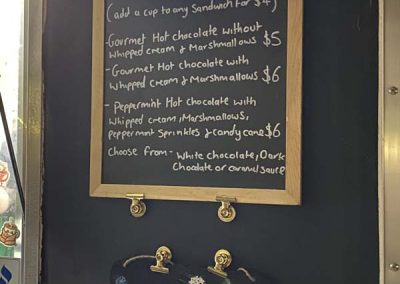 (add a cup to any Sandwich for $4)
-Gourmet Hot chocolate without
Whipped cream & Marshmallows $5
-Gourmet Hot chocolate with
Whipped cream & Marshmallows $6
- Peppermint Hot chocolate with
Whipped cream, Marshmallows,
peppermint Sprinkles & candy cane $6
Choose from - White chocolate, Dark
Chocolate or caramel sauce